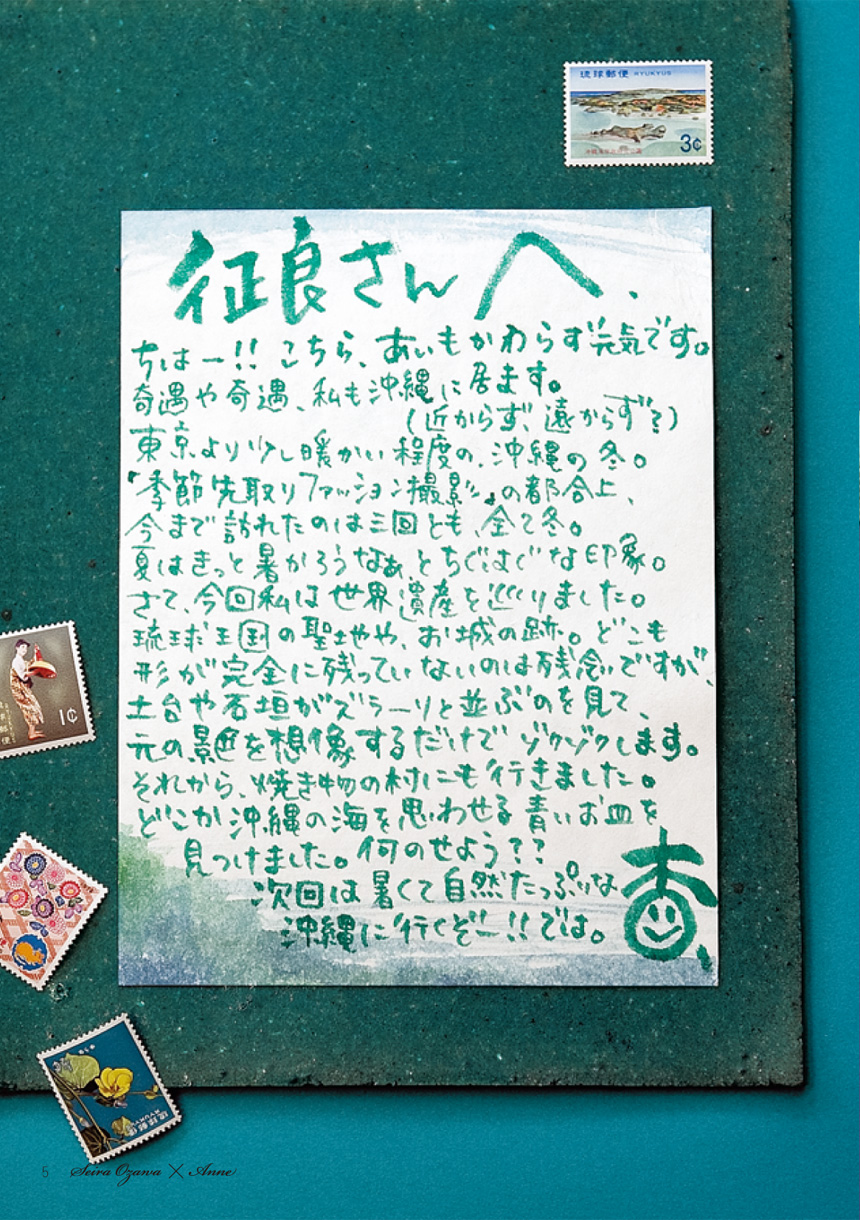 琉球郵便 RYUKYUS
3¢
征良さんへ.
ちはー!! こちら、あいもかわらず元気です。
奇遇や奇遇、私も沖縄に居ます。
(近からず、遠からず?)
東京より少し暖かい程度の、沖縄の冬。
『季節先取りファッション撮影』の都合上、
今まで訪れたのは三回とも、全て冬。
夏はきっと暑かろうなぁ、とちぐはぐな印象。
さて、今回私は世界遺産を巡りました。
琉球王国の聖地や、お城の跡。どこも
形が完全に残っていないのは残念ですが、
土台や石垣がズラーリと並ぶのを見て、
元の景色を想像するだけでゾクゾクします。
それから、焼き物の村にも行きました。
どこか沖縄の海を思わせる青いお皿を
見つけました。何のせよう??
次回は暑くて自然たっぷりな
沖縄に行くぞー!! では。
杏
1¢
琉球郵便
RYUKYUS
5 Seira Ozawa × Anne